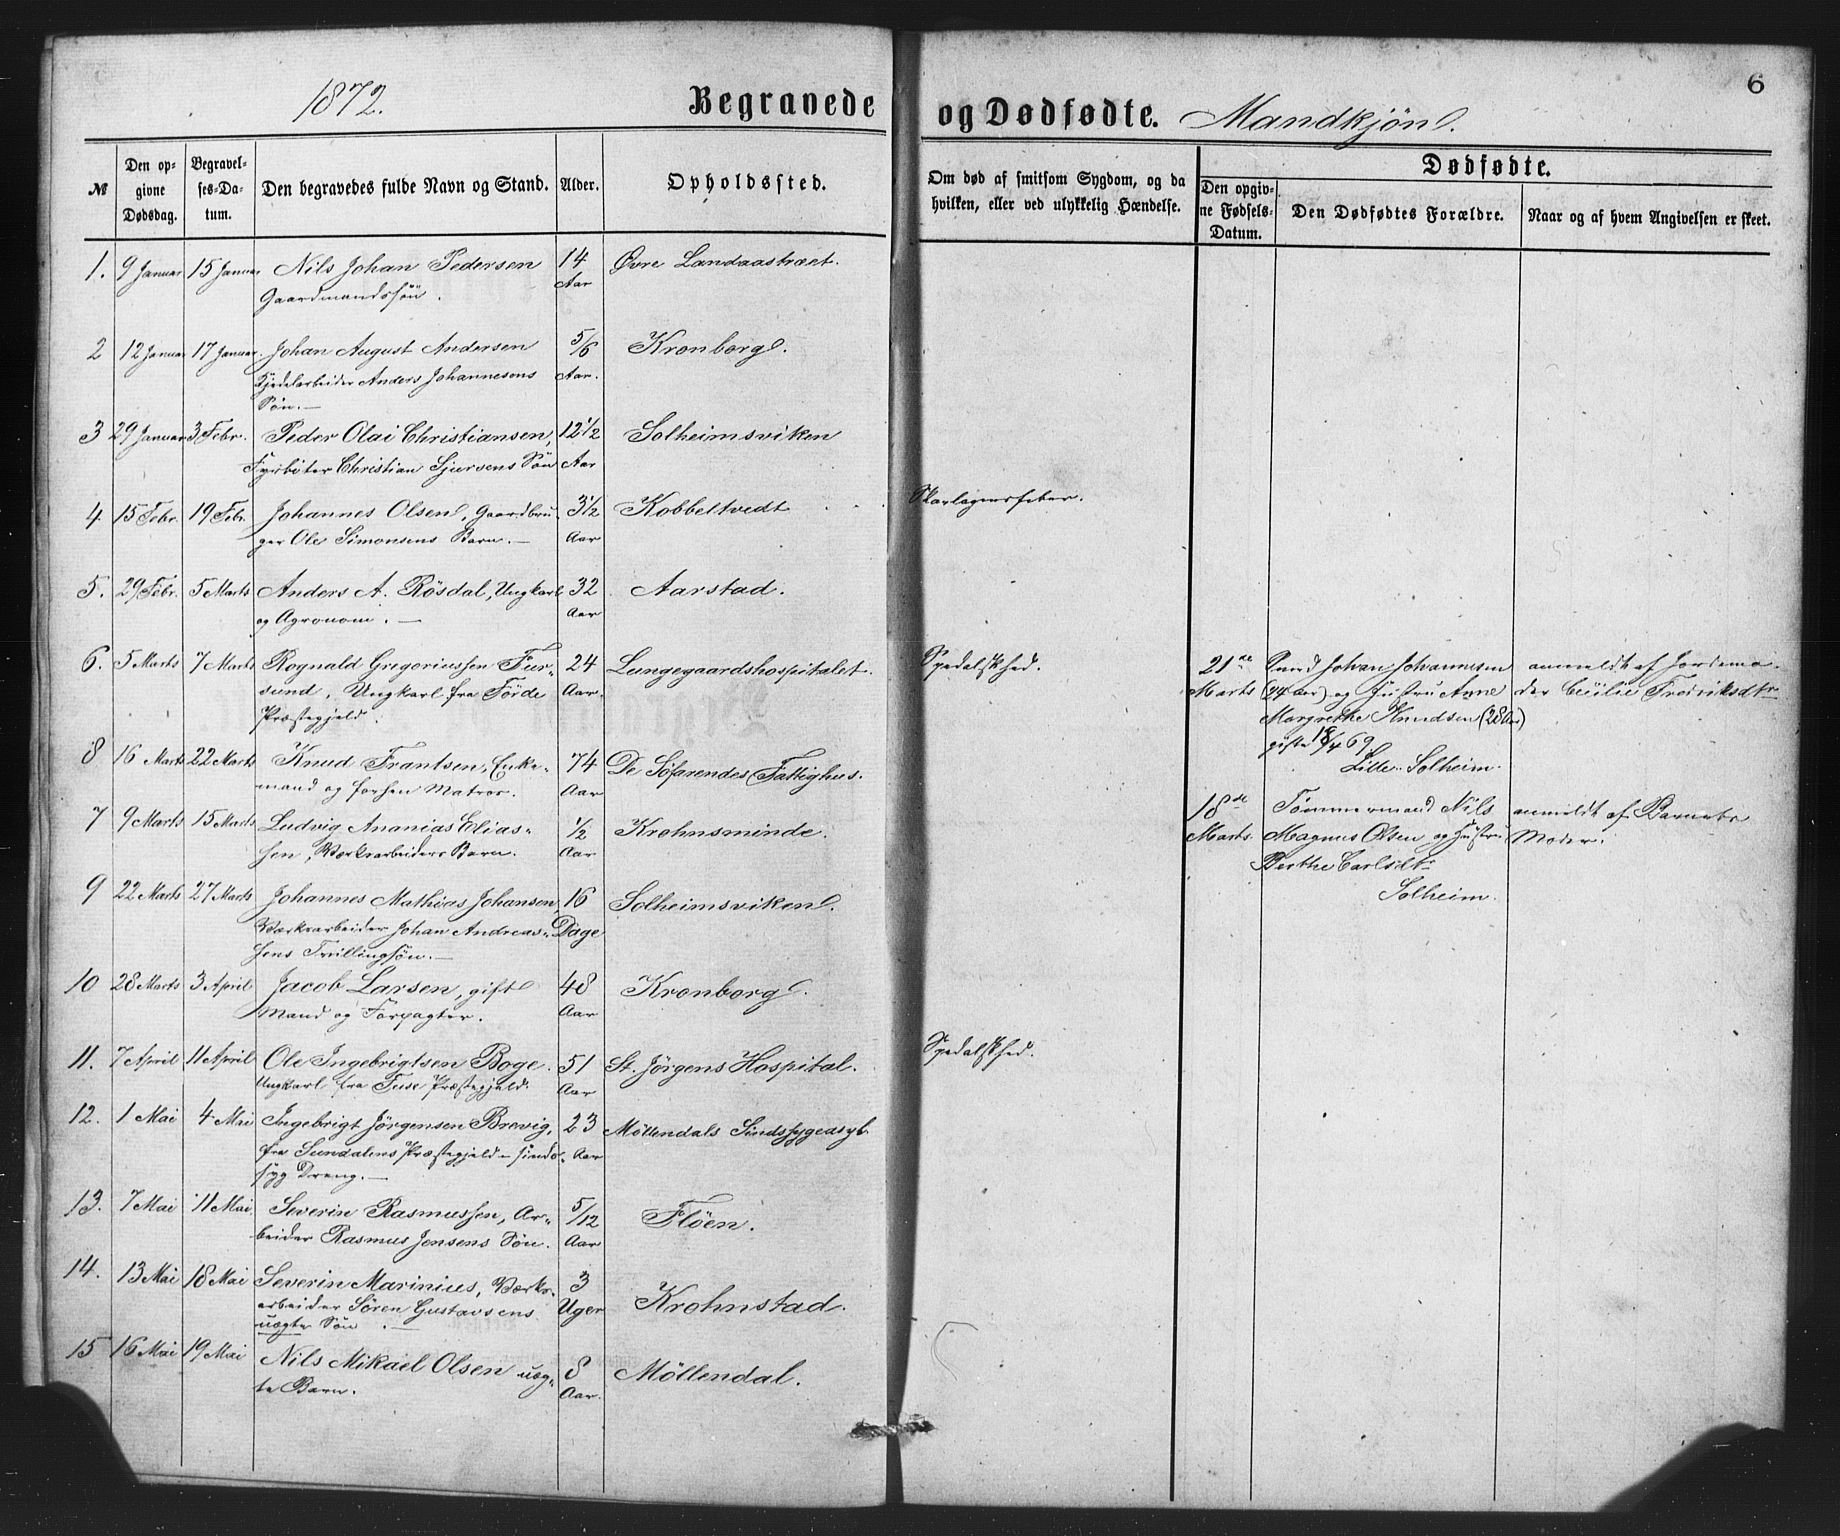 1872.
Begravede
og Dødfødte. Mandkjøn.
6
№
Den opgivne Dødsdag.
Begravelses-Datum.
Den begravedes fulde Navn og Stand.
Alder.
Opholdssted.
Om død af smitsom Sygdom, og da
hvilken, eller ved ulykkelig Hændelse.
Dødfødte.
Den opgivne Fødsels-Datum.
Den Dødfødtes Forældre.
Naar og af hvem Angivelsen er skeet.
1. 9 Januar 15 Januar Nils Johan Pedersen 14 Øvre Landaastræet.
Gaardmandssøn. Aar
2 12 Januar 17 Januar. Johan August Andersen 5/6 Kronborg.
Kjedelarbeider Anders Johannesens Aar.
Søn.—
3 29 Januar 3 Febr. Peder Olai Christiansen, 12 1/2 Solheimsviken
Fyrbøter Christian Sjursens Søn Aar
4 15 Febr. 19 Febr. Johannes Olsen, Gaardbru- 3 1/2 Kobbeltvedt Skarlagensfeber.
ger Ole Simonsens Barn.— Aar
5. 29 Febr. 5 Marts Anders A. Røsdal, Ungkarl 32 Aarstad.
og Agronom.— Aar
6. 5 Marts 7 Marts Rognald Gregoriussen Fur- 24 Lungegaardshospitalet. Spedalskhed.
sund, Ungkarl fra Førde Aar.
Præstegjeld.
8 16 Marts 22 Marts Knud Frantsen, Enke- 74 De Søfarendes Fattighus.
mand og forhen Matros. Aar
7 9 Marts 15 Marts Ludvig Ananias Elias- 1/2 Krohnsminde.
sen, Værksarbeiders Barn. Aar
9 22 Marts 27 Marts Johannes Mathias Johansen, 16 Solheimsviken.
Værksarbeider Johan Andreas- Dage
sens Tvillingsøn.—
10 28 Marts 3 April Jacob Larsen, gift 48 Kronborg.
Mand og Forpagter. Aar
11. 7 April 11 April Ole Ingebrigtsen Boge. 51 St. Jørgens Hospital. Spedalskhed.
Ungkarl fra Fuse Præstegjeld. Aar
12. 1 Mai 4 Mai Ingebrigt Jørgensen Brevig, 23 Møllendals Sindssygeasyl.
fra Sundalens Præstegjeld - sinds- Aar
syg Dreng.—
13. 7 Mai 11 Mai Severin Rasmussen, Ar- 5/12 Fløen.
beider Rasmus Jensens Søn. Aar
14. 13 Mai 18 Mai Severin Marinius, Værks- 3 Krohnstad.
arbeider Søren Gustavsens Uger
uægte Søn.—
15 16 Mai 19 Mai Nils Mikael Olsen uæg- 8 Møllendal.
te Barn. Aar.
21de Smed Johan Johannesen anmeldt af Jordemo-
Marts (24 Aar) og Hustru Anne der Cecilie Fredriksdtr
Margrethe Knudsen (28 Aar)
gifte 18/4 69
Lille-Solheim.
18de Tømmermand Nils anmeldt af Barnets
Marts. Magnus Olsen og Hustru Moder.
Berthe Carlsdtr
Solheim.